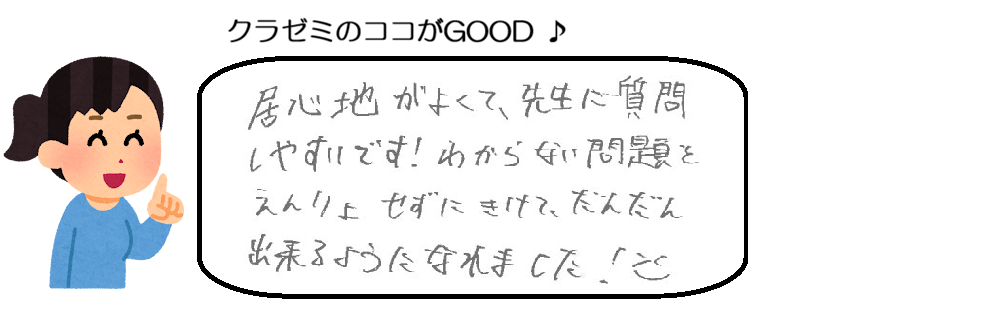 クラゼミのココがGOOD ♪
居心地がよくて、先生に質問
しやすいです！わからない問題を
えんりょせずにきけて、だんだん
出来るようになれました！